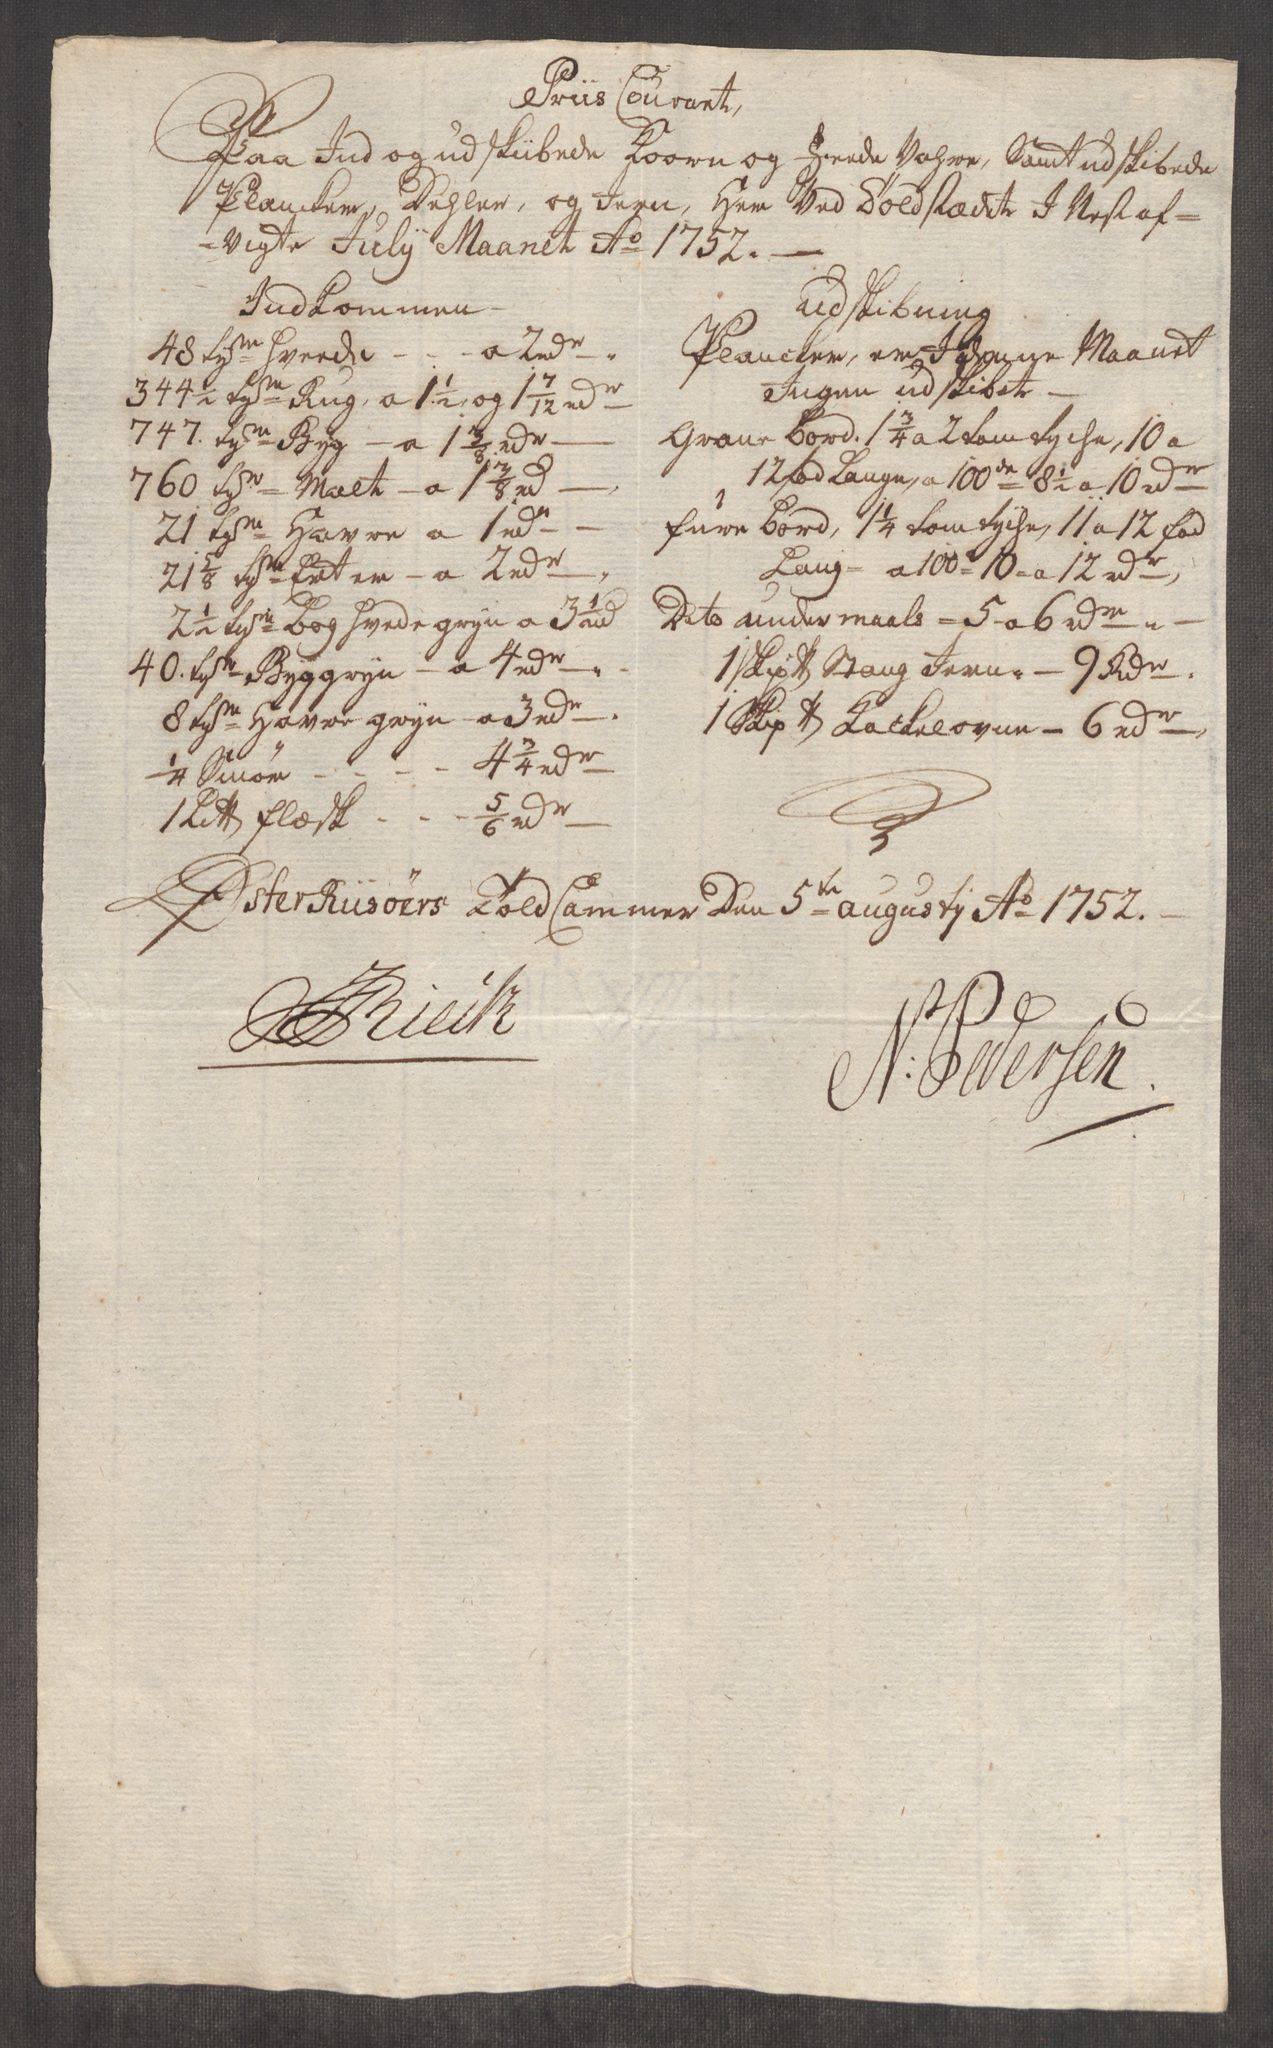 Priis Courant,
Paa Ind og udskibede Koorn og Feede Vahre, Samt udskibede
Plancker, Dehler, og Jern, Her Ved Toldstædit I Nest af=
=vigte July Maanet Ao 1752. —
Indkommen
48 tyr hveede - - - a 2 rdr
344½ tyr Rug, a 1½, og 1 7/12 rdr
747. tyr Byg — a 1 3/8 rdr —
760 tyr Malt — a 1 3/8 rd —
21 tyr Havre a 1 rdr —
21 5/8 tyr Erter — a 2 rdr
2½ tyr Boghvedegryn a 3½ rd
40. tyr Byggryn — a 4 rdr
8 tyr Havregryn — a 3 rdr.
¼ Smör - - - - 4¾ rdr
1 L℔ flæsk - - - 5/6 rdr
udskibning
Plancker, er I denne Maanet
Ingen udskibet —
Grane bord. 1¾ a 2 tom tyche, 10 a
12 fod Lange, a 100de 8½ a 10 rdr
fure bord, 1¼ tom tyche, 11 a 12 fod
Lang — a 100 = 10 = a 12 rdr,
Dito undermaals = 5 a 6 rdr —
1 Skip ℔ Stang Jern. — 9 Rdr.
1 Skip ℔ Kackelovne — 6 rdr
ØsterRiisöers Told Cammer Den 5te augusty Ao 1752. —
Rieik
N: Pedersen.